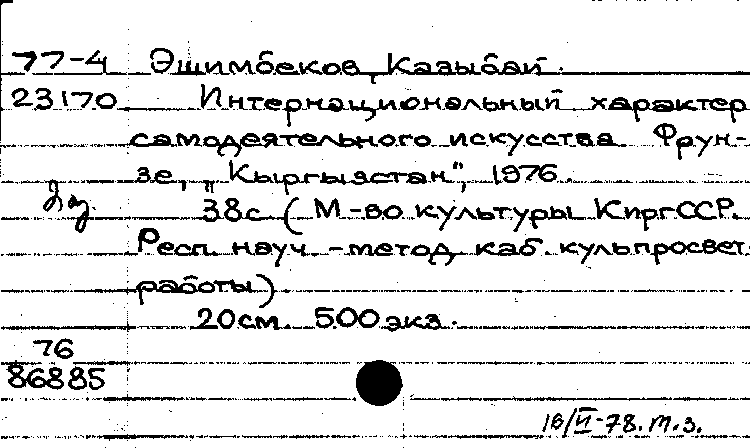 77-4 Эшимбеков, Казыбай.
23170 Интернациональный характер
самодеятельного искусства. Фрун-
зе, "Кыргызстан", 1976.
38с. (М-во культуры КиргССР.
Респ. науч.-метод. каб. культпросвет
работы).
20см. 500экз.
76
86885
16/II-78. т.з.